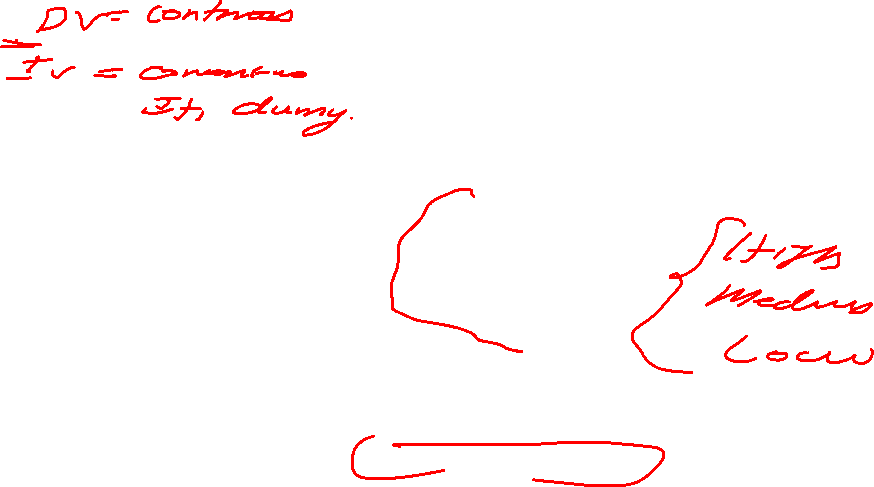 DV = continuous
IV = continuous
It, dumy.
High
Medium
Low